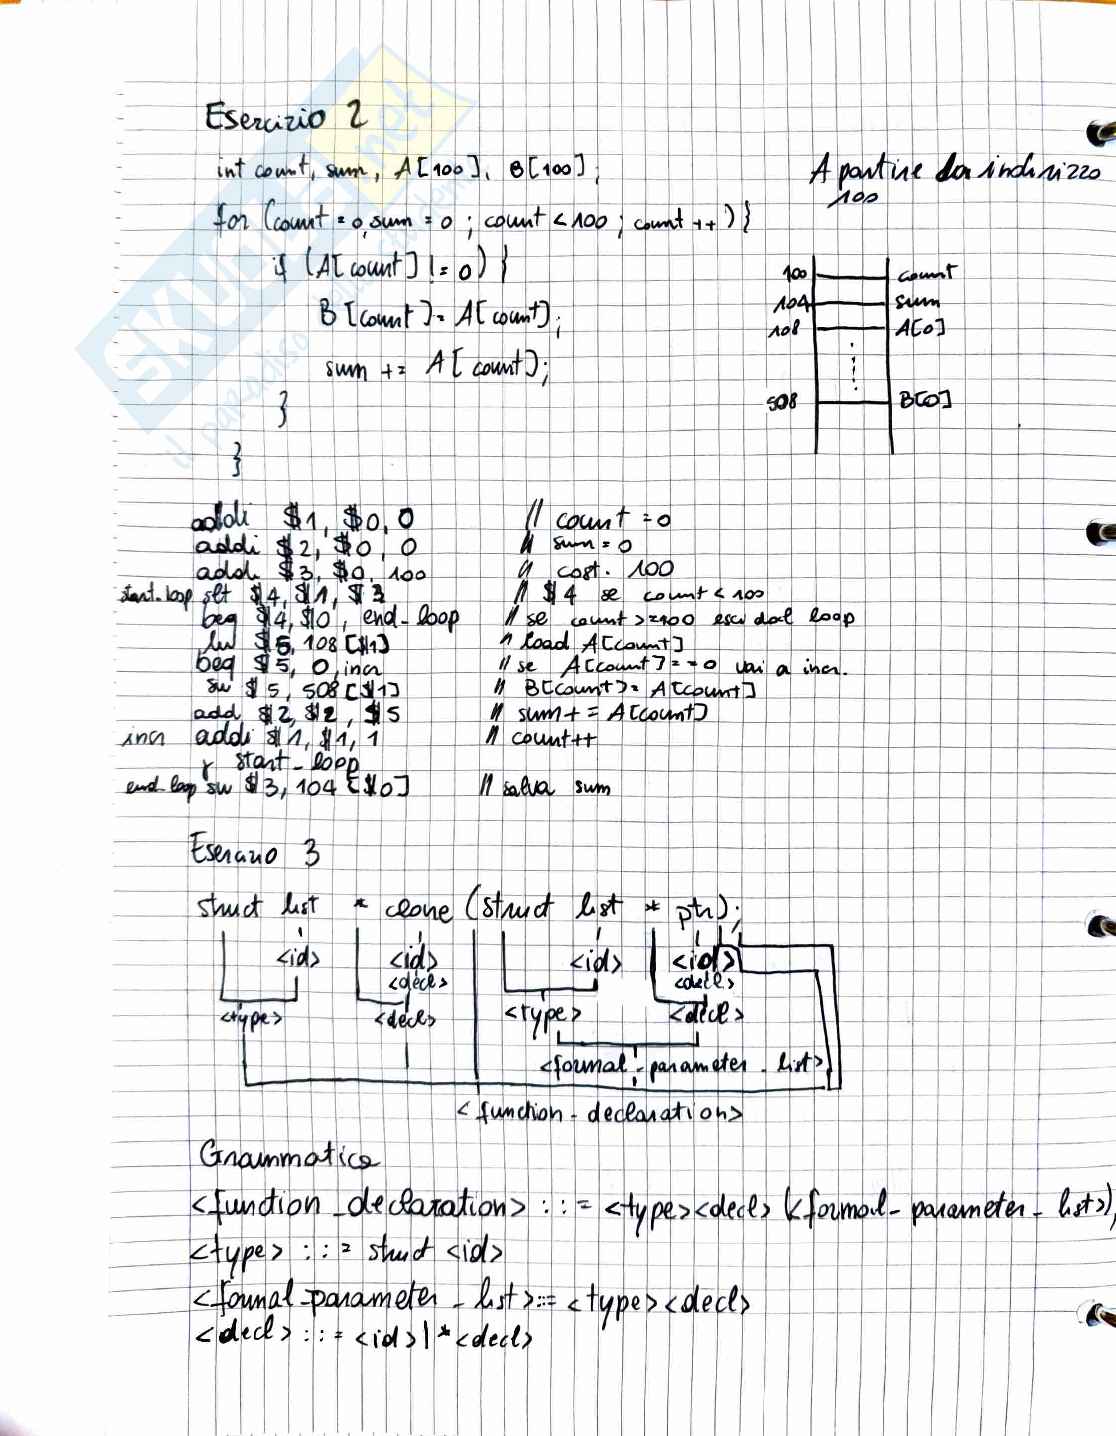 Esercizio 2
int count, sum, A[100], B[100];
A partire da indirizzo
100
for (count = 0, sum = 0 ; count < 100 ; count ++ ) {
if (A[count] != 0) {
B[count] = A[count];
sum += A[count];
}
}
100 count
104 sum
108 A[0]
508 B[0]
addi $1, $0, 0 // count = 0
addi $2, $0, 0 // sum = 0
addi $3, $0, 100 // cost. 100
start_loop slt $4, $1, $3 // $4 se count < 100
beq $4, $0, end_loop // se count >= 100 esci dal loop
lw $5, 108[$1] // load A[count]
beq $5, 0, incr // se A[count] == 0 vai a incr.
sw $5, 508[$1] // B[count] = A[count]
add $2, $2, $5 // sum += A[count]
incr addi $1, $1, 1 // count++
j start_loop
end_loop sw $3, 104[$0] // salva sum
Esercizio 3
struct list * clone (struct list * ptr);
<id> <id> <id> <id>
<decl> <decl>
<type> <decl> <type> <decl>
<formal_parameter_list>
<function_declaration>
Grammatica
<function_declaration> ::= <type><decl> (<formal_parameter_list>);
<type> ::= struct <id>
<formal_parameter_list> ::= <type><decl>
<decl> ::= <id> | *<decl>
SKUOLA.net
il paradiso dello studente